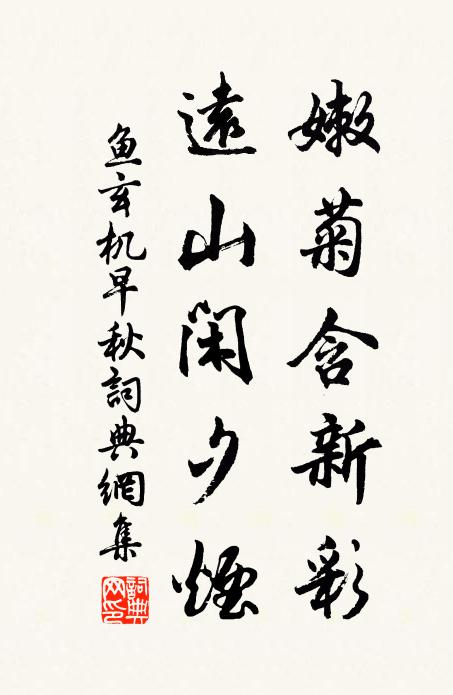 嫩菊含新彩
遠山閑夕煙
鱼玄机早秋詞典網集
詞典网印